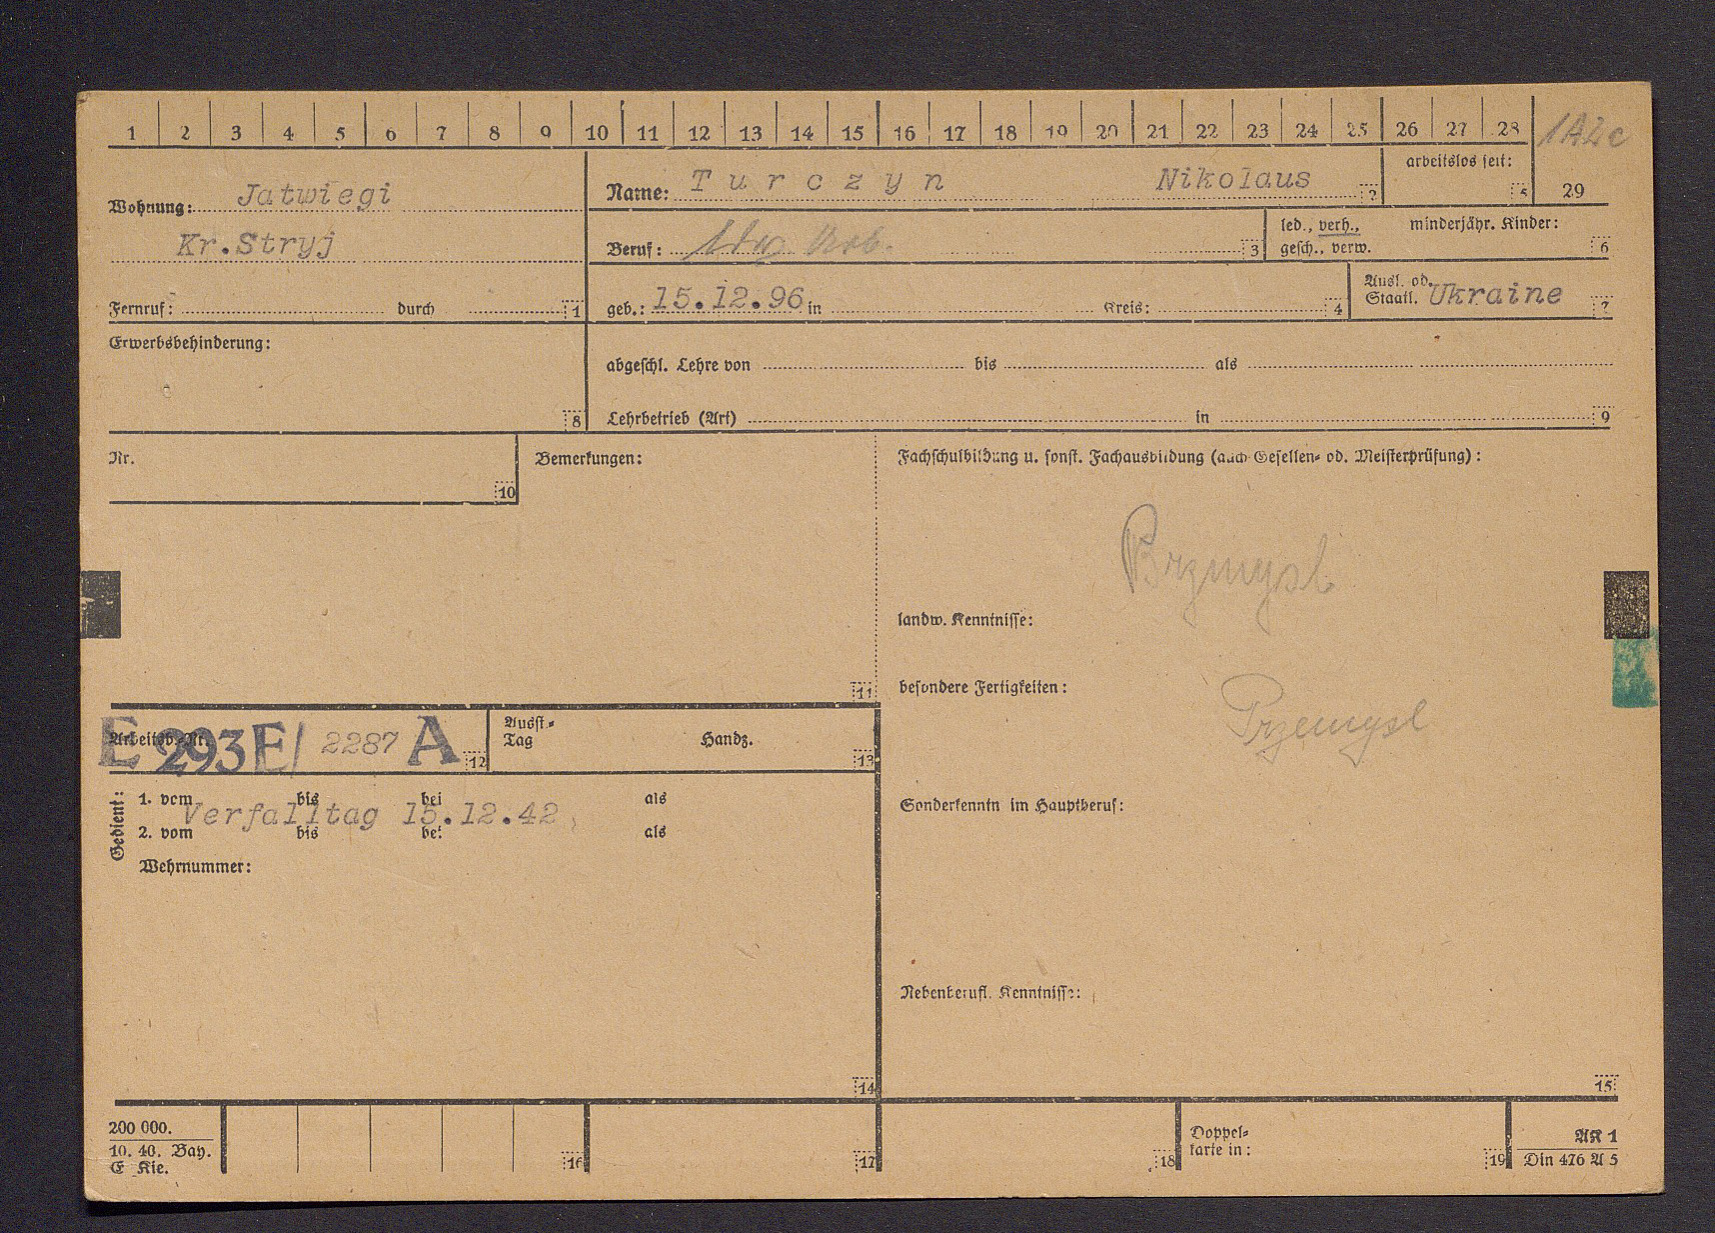 1 2 3 4 5 6 7 8 9 10 11 12 13 14 15 16 17 18 19 20 21 22 23 24 25 26 27 28
1A2c
Wohnung: Jatwiegi
Kr.Stryj
Fernruf: durch 1
Name: Turczyn Nikolaus 2
arbeitslos seit: 5
29
Beruf: ldw. Arb. 3
led., verh., minderjähr. Kinder:
gesch., verw. 6
geb.: 15.12.96 in Kreis: 4
Ausl. od.
Staatl. Ukraine 7
Erwerbsbehinderung:
8
abgeschl. Lehre von bis als
Lehrbetrieb (Art) in 9
Nr.
10
Bemerkungen:
11
Fachschulbildung u. sonst. Fachausbildung (auch Gesellen- od. Meisterprüfung):
Przmysl
landw. Kenntnisse:
besondere Fertigkeiten:
Przemysl
Sonderkenntn im Hauptberuf:
Nebenberufl. Kenntnisse:
15
Arbeitsb.-Nr. E 293 E/ 2287 A 12
Ausst.-
Tag Handz.
13
Gedient:
1. vom bis bei als
Verfalltag 15.12.42
2. vom bis bei als
Wehrnummer:
14
200 000.
10. 40. Bay.
E Kie.
16
17
18
Doppel-
karte in:
19
AK 1
Din 476 A 5